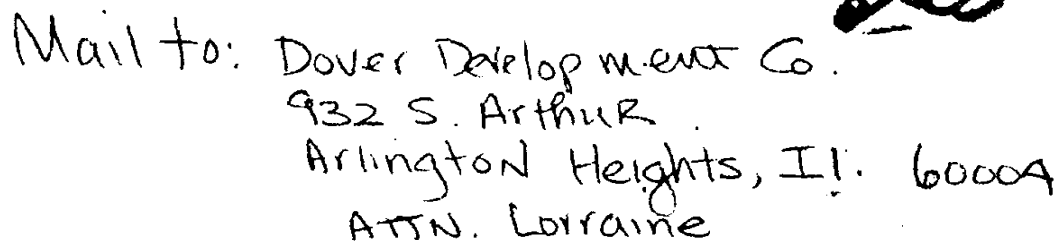 Mail to: Dover Development Co.
932 S. Arthur
Arlington Heights, Il. 60004
ATTN. Lorraine